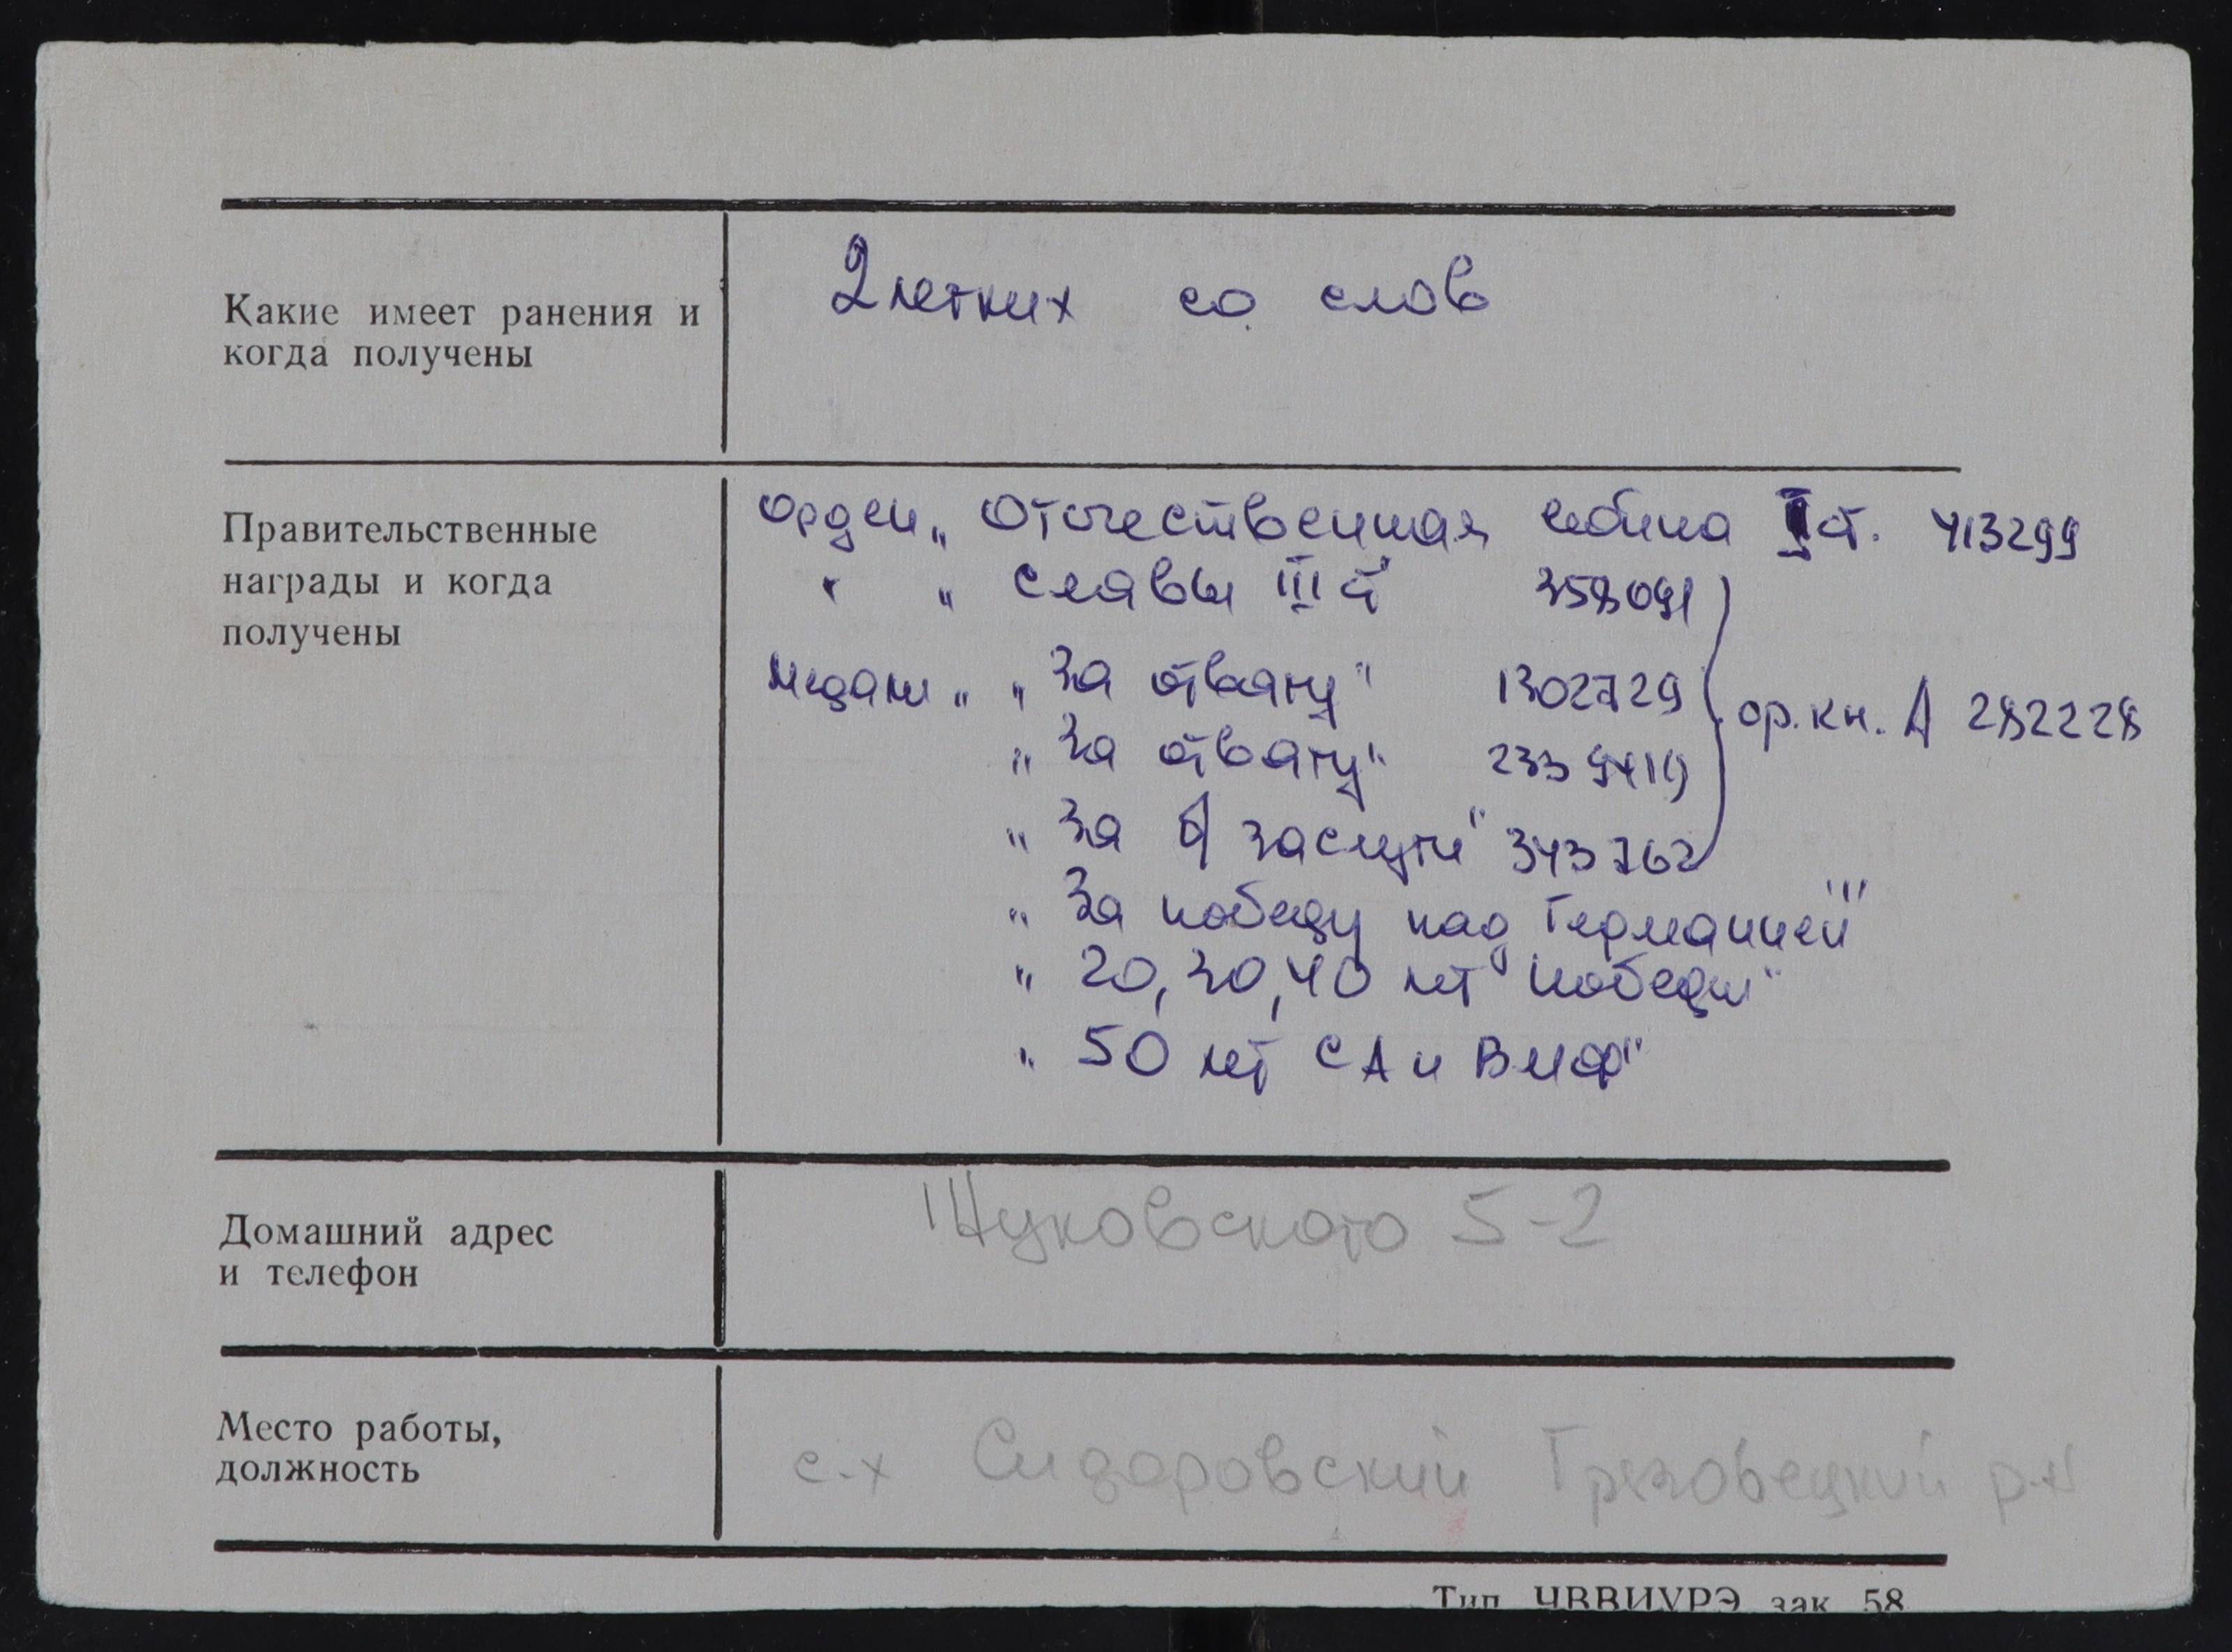 Какие имеет ранения и
когда получены
2 легких со слов
Правительственные
награды и когда
получены
Орден „ Отечественная война I ст. 413299
" „ Славы III ст 358091
Медали „ „За отвагу"  1302729
„За отвагу"
ор.кн. А 282228
„За заслуги" 343762
„За победу над Германией"
„ 20, 30, 40 лет Победы"
„ 50 лет СА и ВМФ"
Домашний адрес
и телефон
Жуковского 5-2
Место работы,
должность
с-х Сидоровский Грязовецкий р-н
Тип ЧВВИУРЭ зак 58